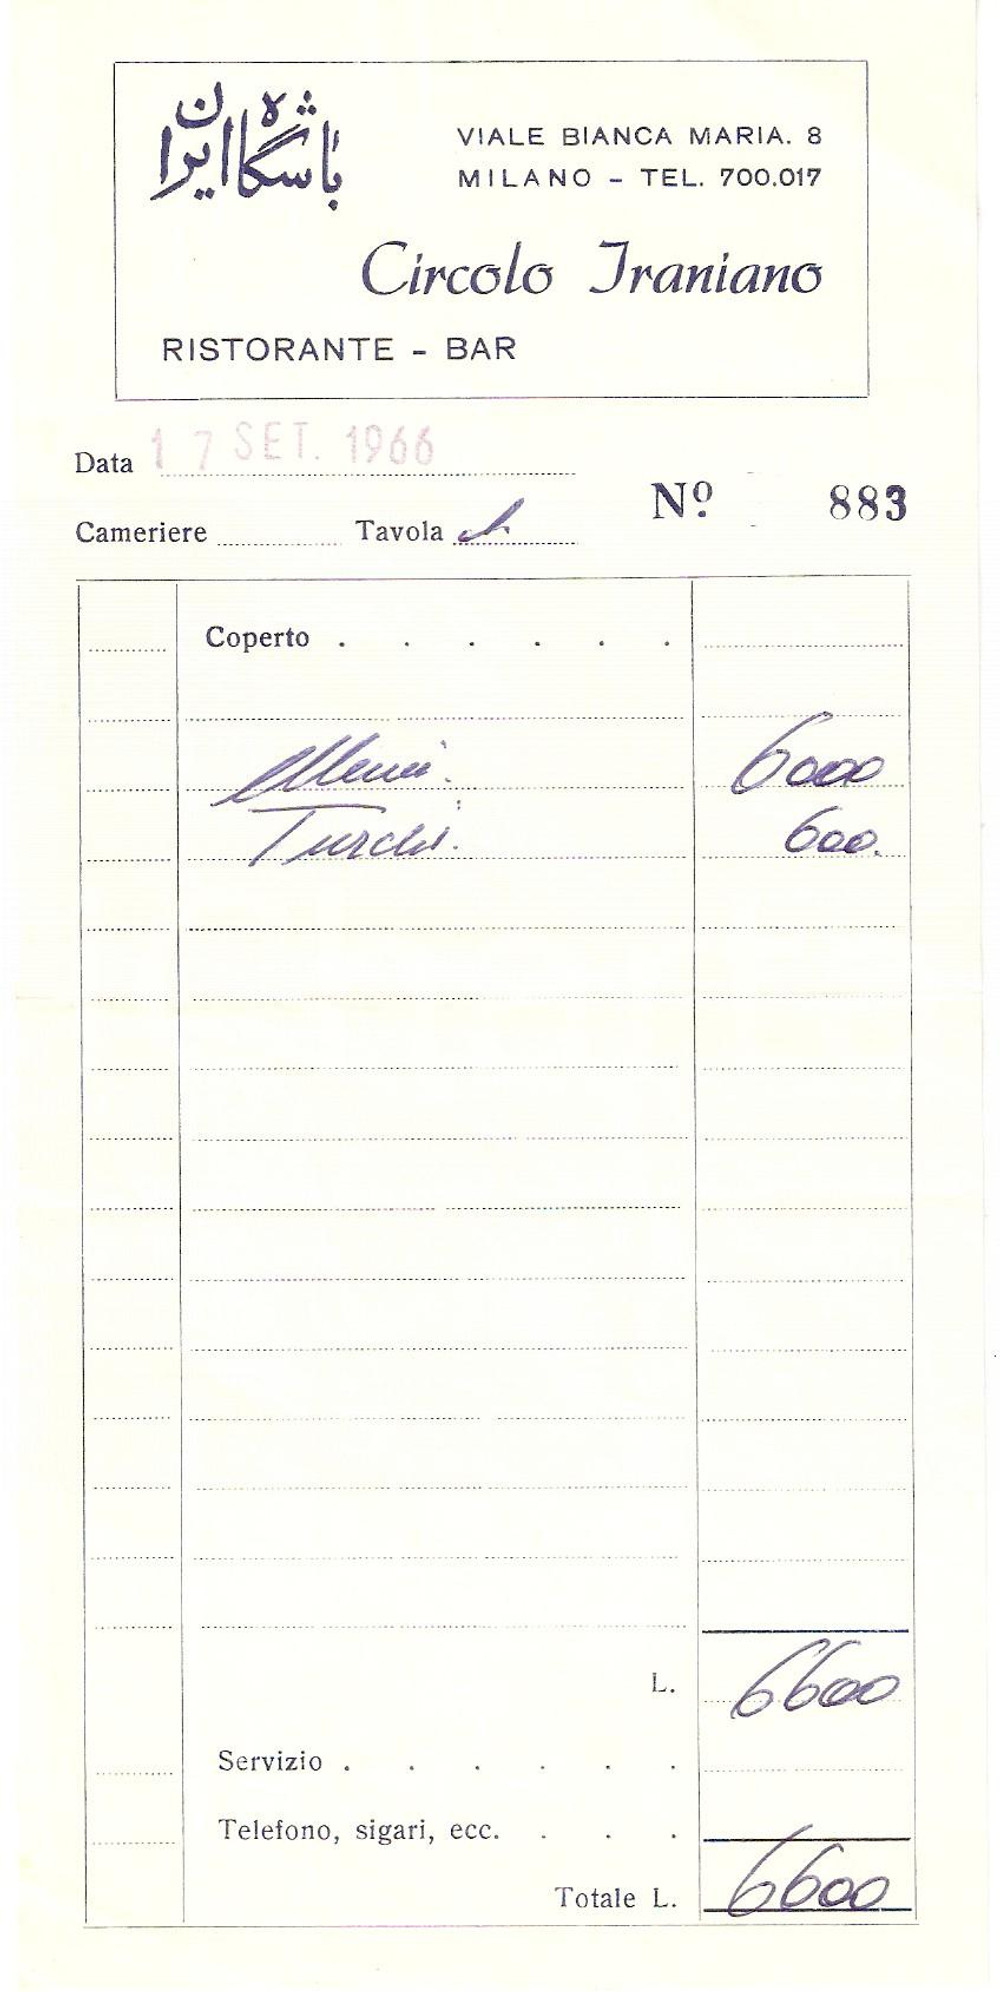 باشگاه ایران
VIALE BIANCA MARIA. 8
MILANO - TEL. 700.017
Circolo Iraniano
RISTORANTE - BAR
Data 17 SET. 1966
Nº 883
Cameriere Tavola
Coperto . . . . . .
Menù 6000
600
L. 6600
Servizio . . . . . .
Telefono, sigari, ecc. . . .
Totale L. 6600